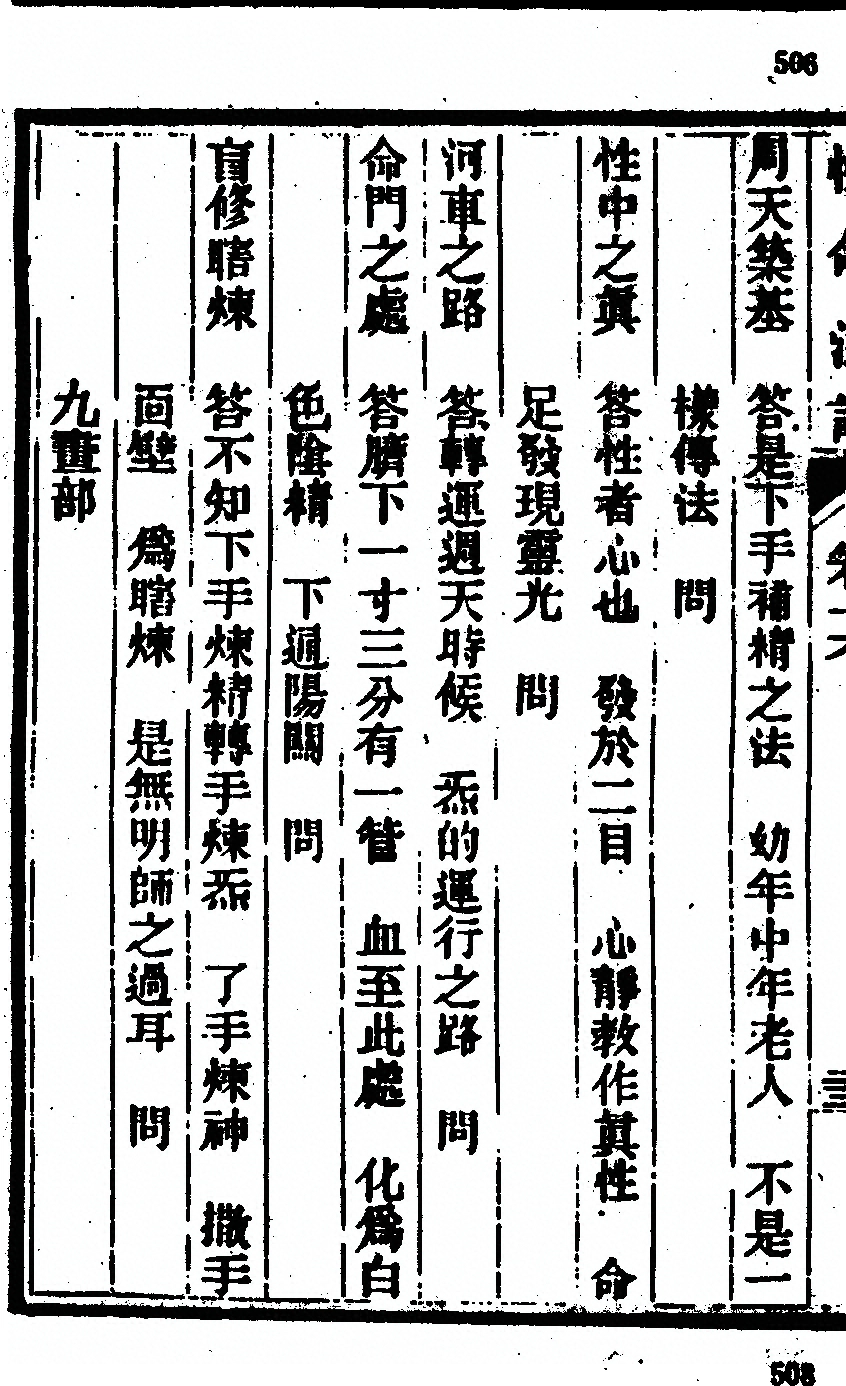 506
周天築基 答是下手補精之法 幼年中年老人 不是一
樣傳法 問
性中之眞 答性者心也 發於二目 心靜敎作眞性 命
足發現靈光 問
河車之路 答轉運週天時候 炁的運行之路 問
命門之處 答臍下一寸三分有一管 血至此處 化爲白
色陰精 下通陽關 問
盲修瞎煉 答不知下手煉精轉手煉炁 了手煉神 撒手
面壁 爲瞎煉 是無明師之過耳 問
九畫部
508